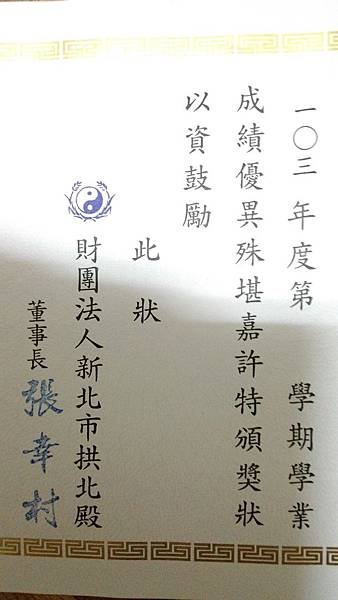 一〇三年度第 學期學業
成績優異殊堪嘉許特頒獎狀
以資鼓勵
此狀
財團法人新北市拱北殿
董事長 張幸村